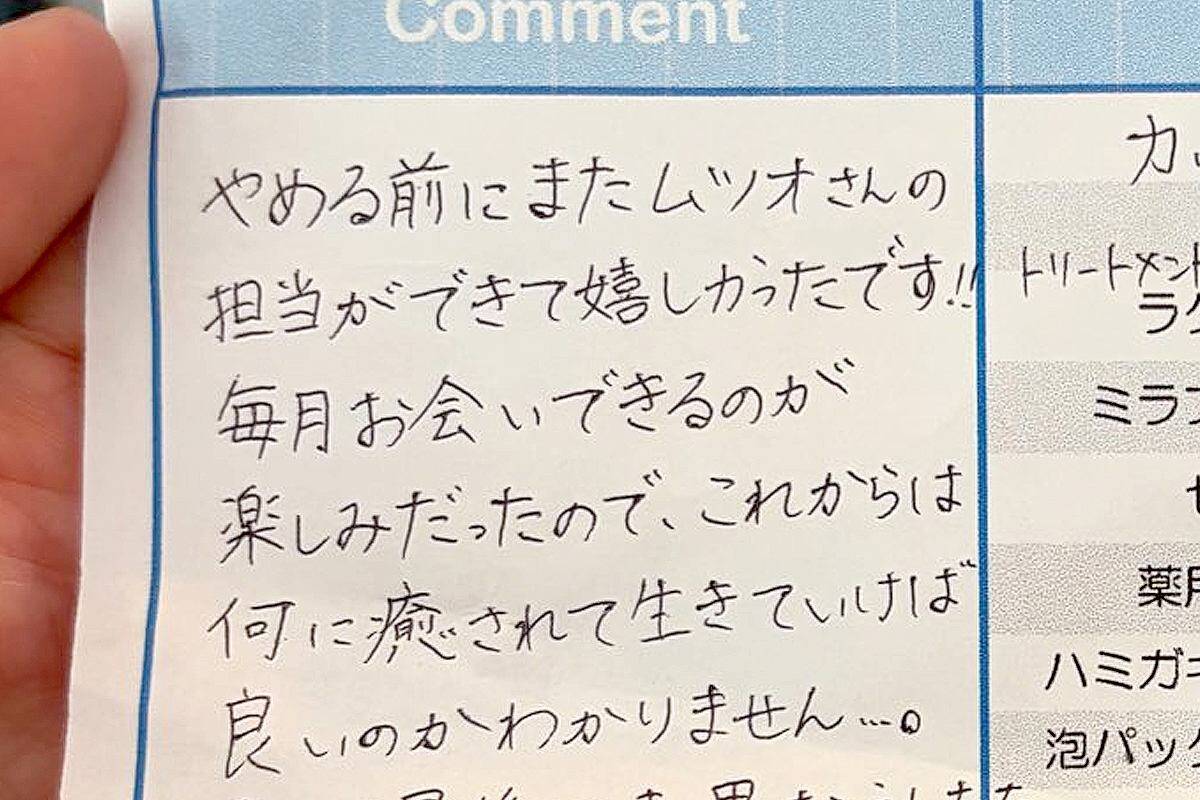 Comment
やめる前にまたムツオさんの
担当ができて嬉しかったです!!
毎月お会いできるのが
楽しみだったので、これからは
何に癒されて生きていけば
良いのかわかりません…。
カ
トリートメント
ラ
ミラブ
薬用
ハミガキ
泡パック